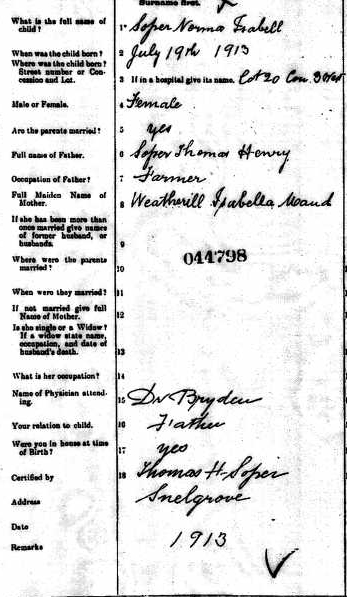 Surname first.
What is the full name of child? 1 Soper Norma Isabell
When was the child born? 2 July 19th 1913
Where was the child born? Street number or Concession and Lot. 3 If in a hospital give its name. Lot 20 Con 3
Male or Female. 4 Female
Are the parents married? 5 yes
Full name of Father. 6 Soper Thomas Henry
Occupation of Father? 7 Farmer
Full Maiden Name of Mother. 8 Weatherill Isabella Maud
If she has been more than once married give names of former husband, or husbands. 9
044798
Where were the parents married? 10
When were they married? 11
If not married give full Name of Mother. 12
Is she single or a Widow? If a widow state name, occupation, and date of husband's death. 13
What is her occupation? 14
Name of Physician attending. 15 Dr Bryden
Your relation to child. 16 Father
Were you in house at time of Birth? 17 yes
Certified by 18 Thomas H Soper
Address Snelgrove
Date 1913
Remarks